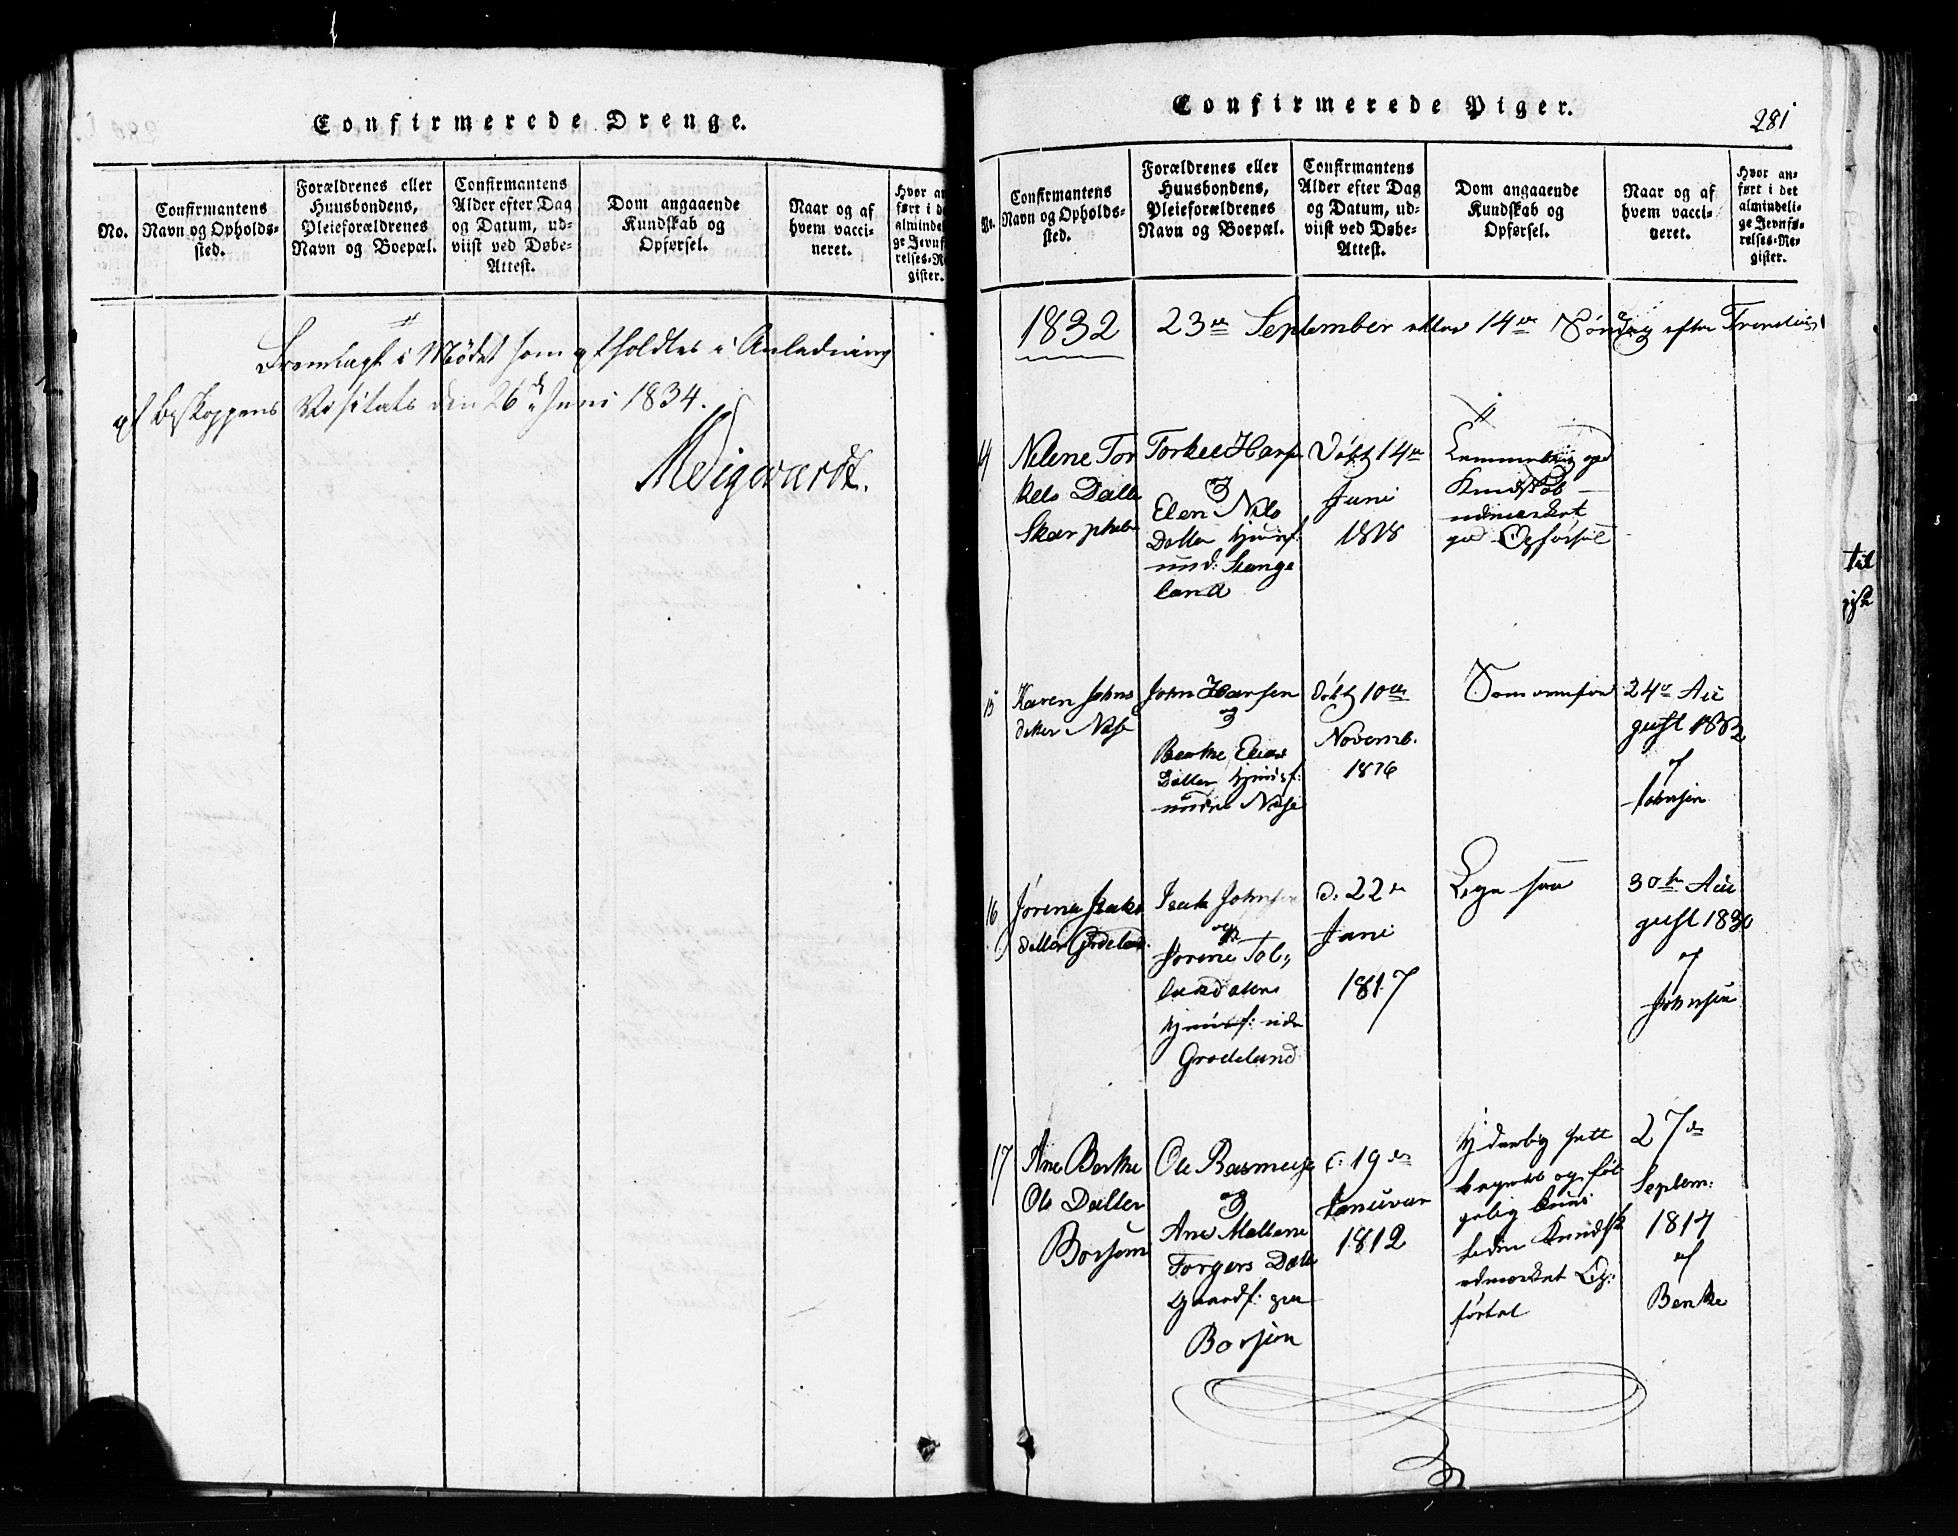 Confirmerede Drenge.
No.
Confirmantens
Navn og Opholds-
sted.
Forældrenes eller
Huusbondens,
Pleieforældrenes
Navn og Boepæl.
Confirmantens
Alder efter Dag
og Datum, ud-
viist ved Døbe-
Attest.
Dom angaaende
Kundskab og
Opførsel.
Naar og af
hvem vacci-
neret.
Hvor an
ført i de
almindel
ge Jevnf
relses-Re
gister.
Fremlagt i Mødet som afholdtes i Anledning
af Biskoppens Visitats den 26de Juni 1834.
Confirmerede Piger.
281
No.
Confirmantens
Navn og Opholds-
sted.
Forældrenes eller
Huusbondens,
Pleieforældrenes
Navn og Boepæl.
Confirmantens
Alder efter Dag
og Datum, ud-
viist ved Døbe-
Attest.
Dom angaaende
Kundskab og
Opførsel.
Naar og af
hvem vacci-
neret.
Hvor an-
ført i det
almindeli-
ge Jevnfø-
relses-Re-
gister.
1832 23de September eller 14de Søndag efter
Nelene Tor
kels Datter
Torkel Hans
og
Elen Nils
Datter Huusf:
und: Stange
land
Døbt 14de
Juni
1818
Temmelig god
Kundskab
udmærket
god Opførsel
15
Karen Johns
datter
John Hansen
og
Berthe Elias
Datter Huusf:
under
Døbt 10de
Novemb.
1816
Som
24de Au
gust 1832
af
Johnsen
16
Jørene Isaks
datter Grodeland
Isak Johnsen
og
Jørene Tol-
laksdatter
Huusf: under
Grodeland
d. 22de
Juni
1817
Lige saa
30te Au
gust 1830
af
Johnsen
17
Ane Berthe
Ols Datter
Ole Rasmus
og
Ane Mallene
Torgers Datter
Gaardf: paa
d: 19de
Januvar
1812
begavet og føl
gelig kuns
liden Kundsk
udmærket Op-
førsel
27de
Septem:
1814
af
Benke